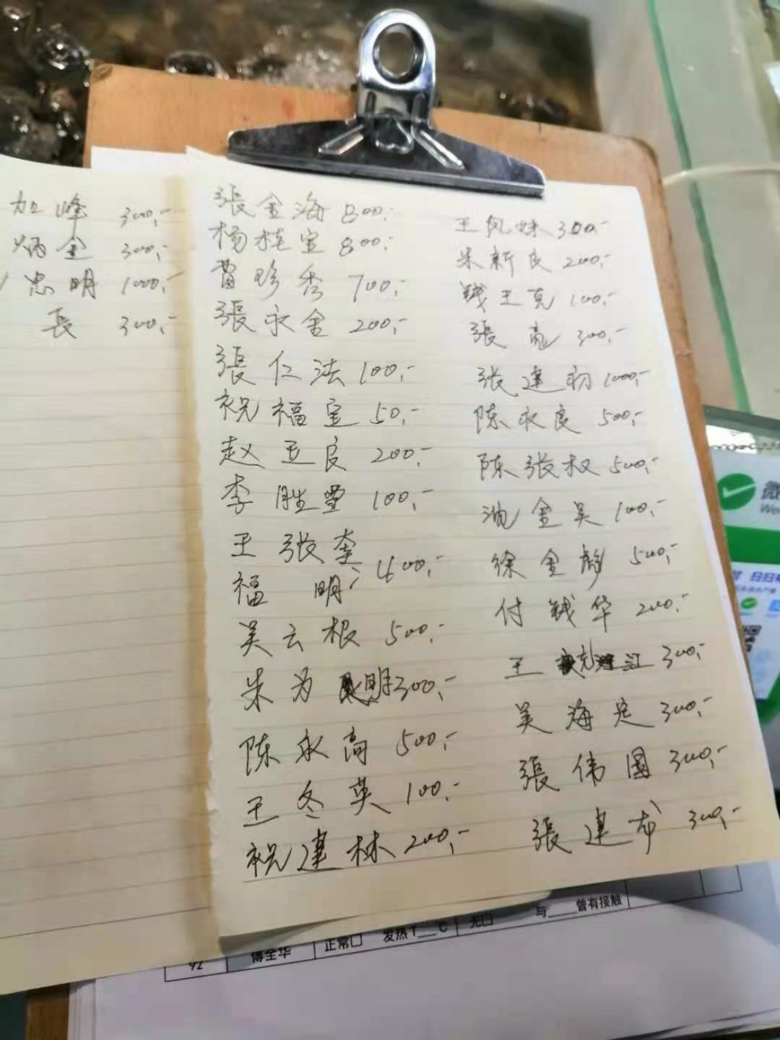 加峰 300,-
炳金 300,-
忠明 1000,-
長 300,-
張金海 800,-
杨桂宝 800,-
曹珍秀 700,-
張永金 200,-
張仁法 100,-
祝福宝 50,-
赵亚良 200,-
李胜 100,-
王张奎
福明 600,-
吴云根 500,-
朱为明 300,-
陈永高 500,-
王冬英 100,-
祝建林 200,-
王凤妹 300,-
朱新良 200,-
钱王克 100,-
張亮 300,-
张建初 1000,-
陈永良 500,-
陈张权 500,-
金吴 100,-
徐金 500,-
付钱华 200,-
王 江 300,-
吴海 300,-
張伟國 300,-
張建 300,-
微
We
92 傅全华 正常□ 发热T___C 无□ 与____曾有接触